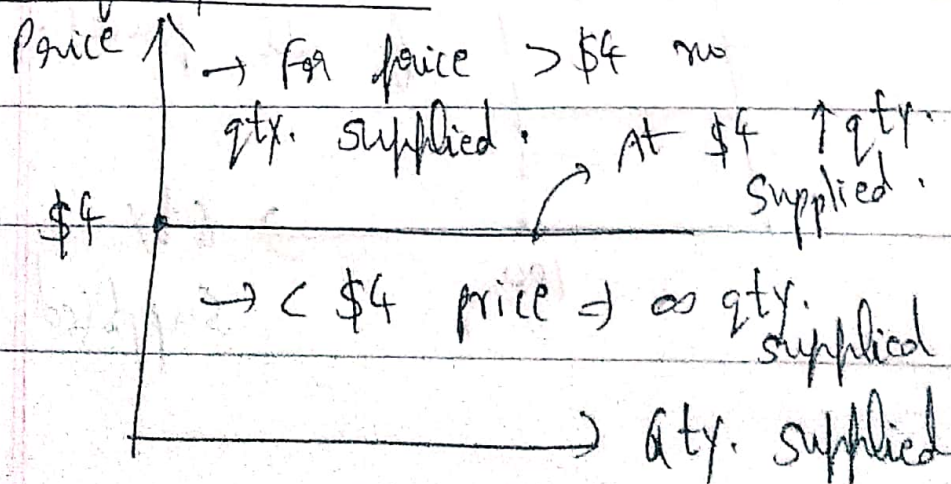 Price
→ For price > $4 no
qty. supplied.
At $4 ↑ qty.
supplied.
$4
→ < $4 price ⇒ ∞ qty.
supplied
Qty. supplied